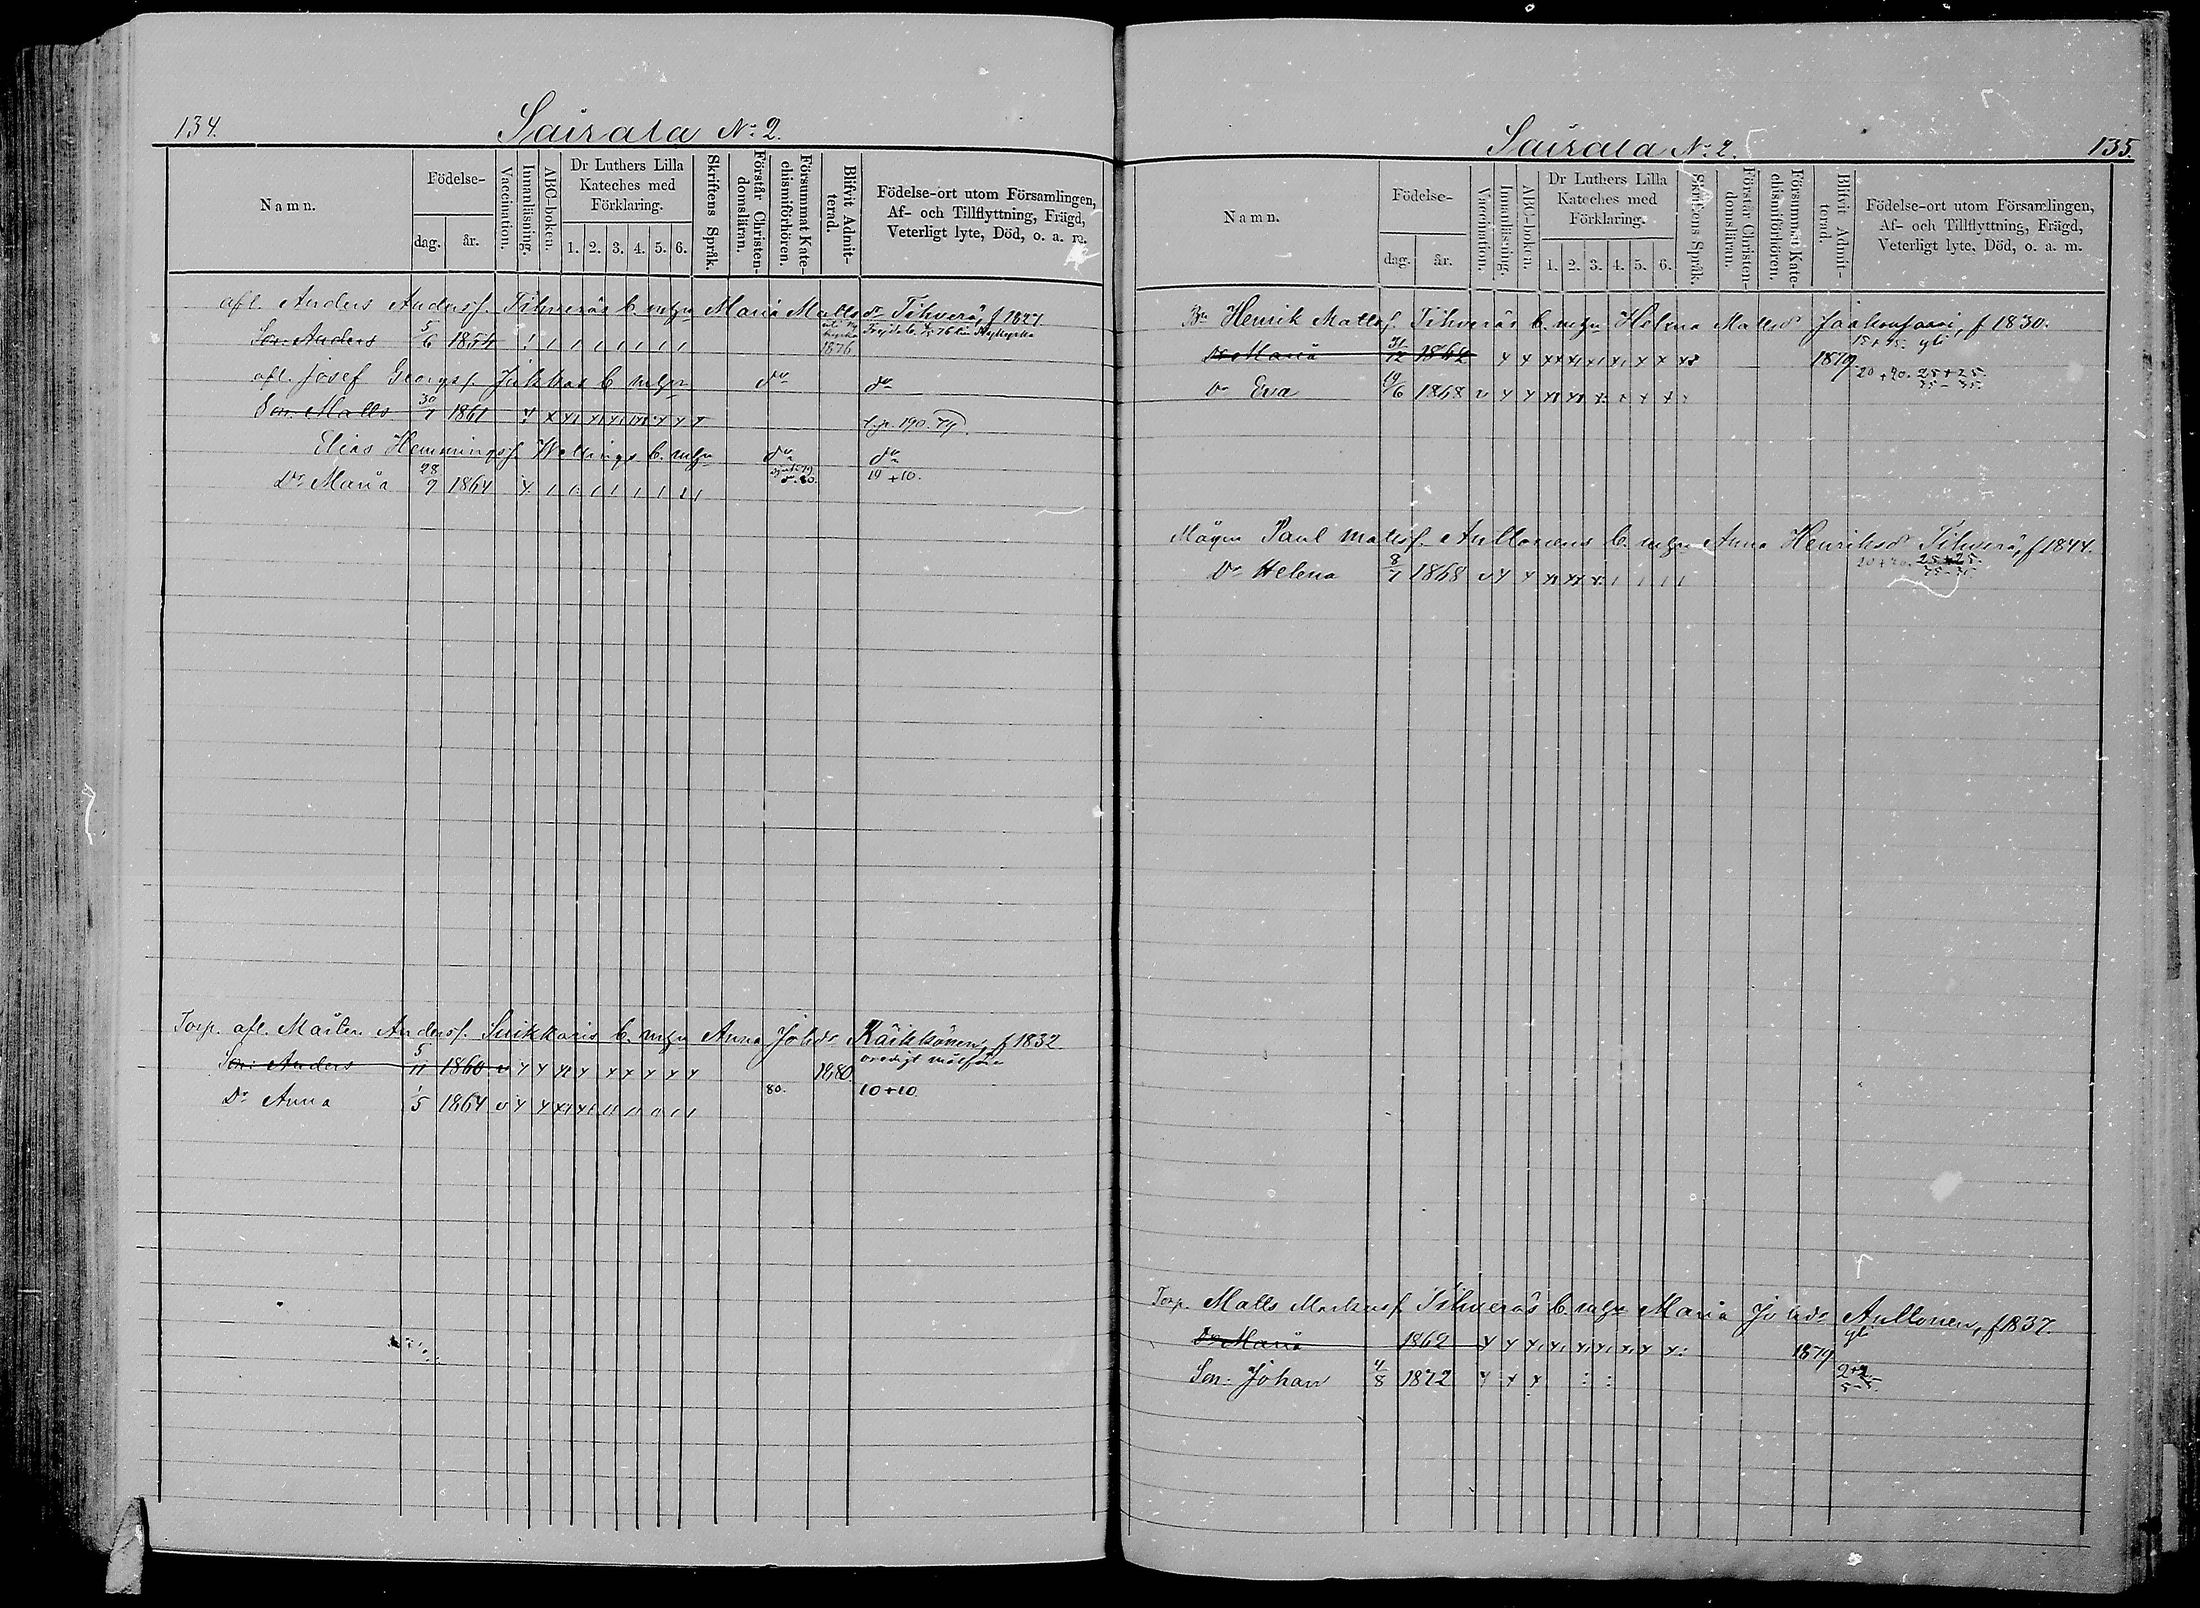 134.
Sairala No 2.
Namn.
Födelse-
dag.
år.
Vaccination.
Innanläsning.
ABC-boken.
Dr Luthers Lilla
Kateches med
Förklaring.
1. 2. 3. 4. 5. 6.
Skriftens Språk.
Förstår Christen-
domsläran.
Försummat Kate-
chismiförhören.
Blifvit Admit-
terad.
Födelse-ort utom Församlingen,
Af- och Tillflyttning, Frägd,
Veterligt lyte, Död, o. a. m.
afl. Anders Andersf. Tihveräs b. m hu Maria Matts dr Tihverä, f 1827.
Son: Anders 5/6 1854 1876
afl. Josef Georgsf. Jukkas b. m hu do do
Son: Matts 30/7 1861 f. p. 190.
Elias Hemmingsf. Wallings b. m hu do do
Dr Maria 28/7 1864 19 + 10.
Torp. afl. Mårten Andersf. Suikkaris b. m hu Anna Johdr Käikkönen, f 1832.
Son: Anders 5/11 1860 1880.
Dr Anna 1/5 1864 80. 10+10.
Sairala No 2.
135.
Namn.
Födelse-
dag.
år.
Vaccination.
Innanläsning.
ABC-boken.
Dr Luthers Lilla
Kateches med
Förklaring.
1. 2. 3. 4. 5. 6.
Skriftens Språk.
Förstår Christen-
domsläran.
Försummat Kate-
chismiförhören.
Blifvit Admit-
terad.
Födelse-ort utom Församlingen,
Af- och Tillflyttning, Frägd,
Veterligt lyte, Död, o. a. m.
Bn Henrik Mattsf. Tihveräs b. m hu Helena Mattsdr Jääkonsaari, f 1830.
Dr Maria 31/12 1862 1879. 15+15. gli
Dr Eva 19/6 1868 20+20. 25+25. 35-35.
Mågen Paul Mattsf. Aultonens b. m hu Anna Henriksdr Tihverä, f 1844.
Dr Helena 8/7 1868 20+20. 25+25. 35-35.
Torp. Matts Markusf. Tihveräs b. m hu Maria Johdr Aultonen, f 1837.
Dr Maria 1862 1879 gli
Son: Johan 4/8 1872 2+2. 5-5.